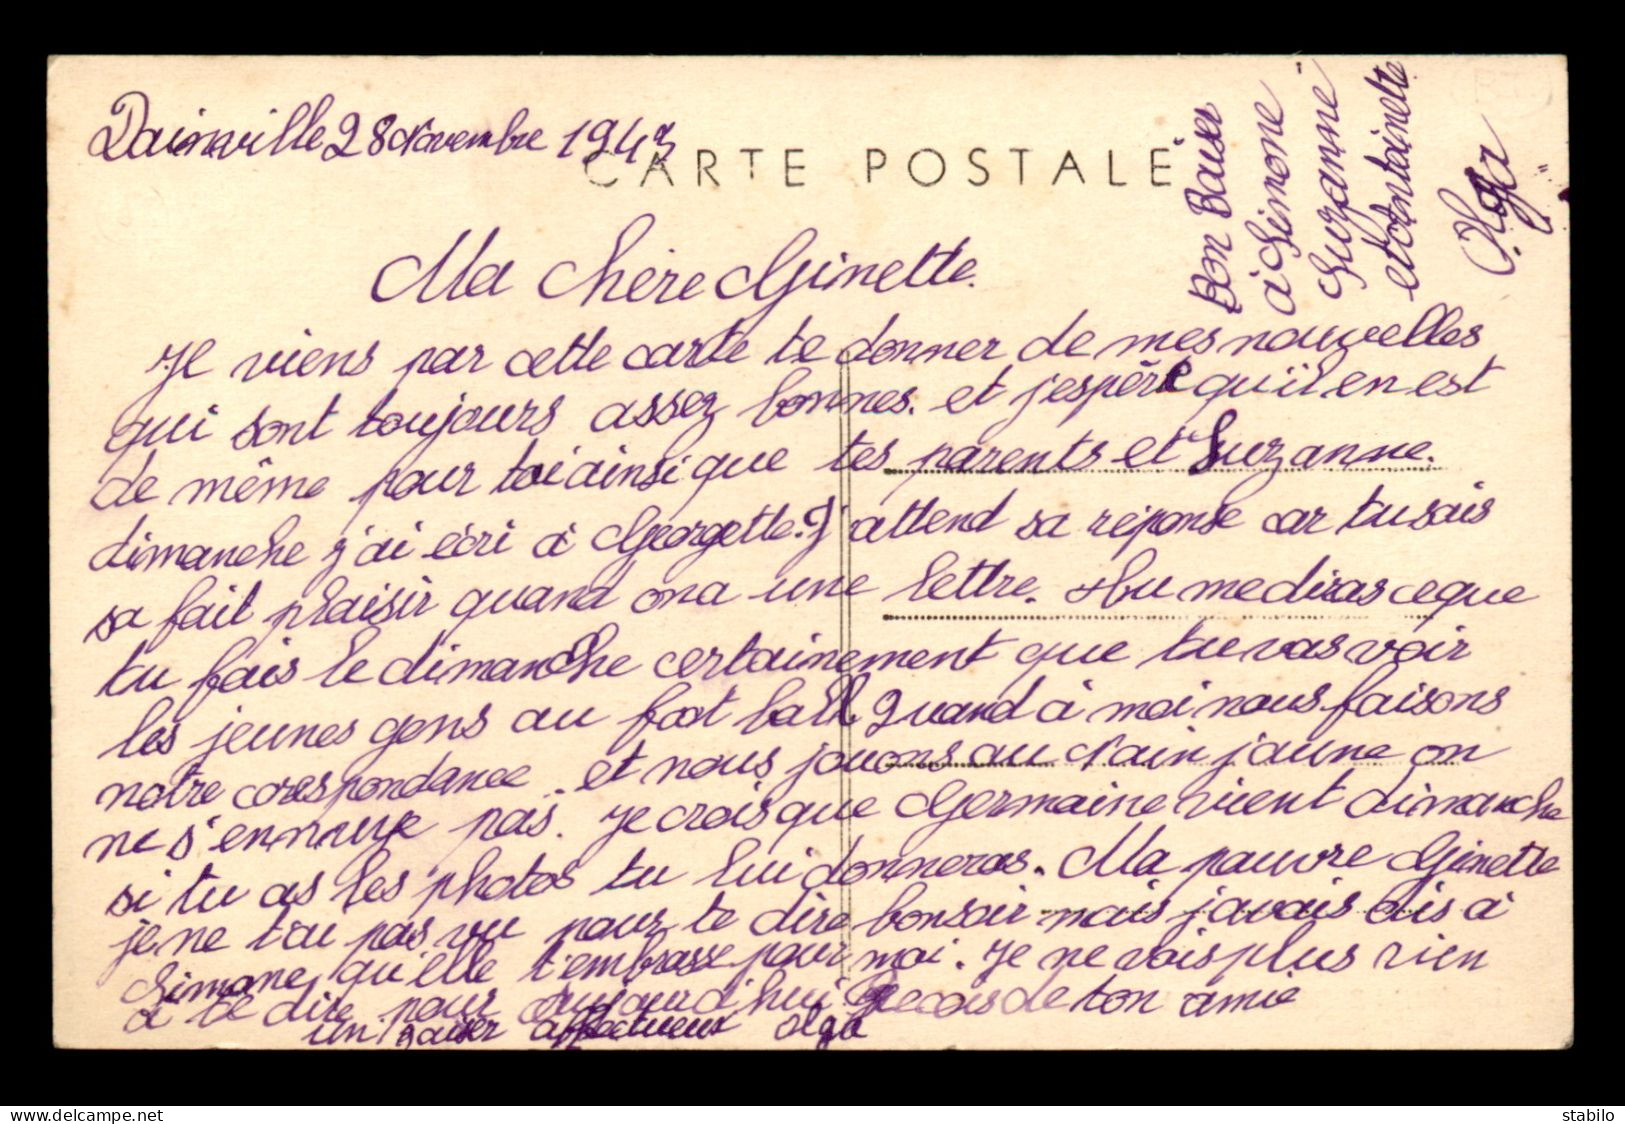 Dainville 28 Novembre 1943
CARTE POSTALE
Ma chère Ginette.
Je viens par cette carte te donner de mes nouvelles
qui sont toujours assez bonnes. et j'espère qu'il en est
de même pour toi ainsi que tes parents et Suzanne.
dimanche j'ai écri à Georgette. J'attend sa réponse car tu sais
sa fait plaisir quand on a une lettre. tu me diras ce que
tu fais le dimanche certainement que tu vas voir
les jeunes gens au foot ball. Quand à moi nous faisons
notre corespondance. et nous jouons au Nain jaune on
ne s'ennuye pas. Je crois que Germaine vient dimanche
si tu as les photos tu lui donneras. Ma pauvre Ginette
je ne t'ai pas vu pour te dire bonsoir mais j'avais dis à
Simone qu'elle t'embrasse pour moi. Je ne vois plus rien
à te dire pour aujourd'hui Recois de ton amie
un baiser affectueux olga
Bon Baiser
à Simone
Suzanne
et Antoinette
Olga
delcampe.net
stabilo